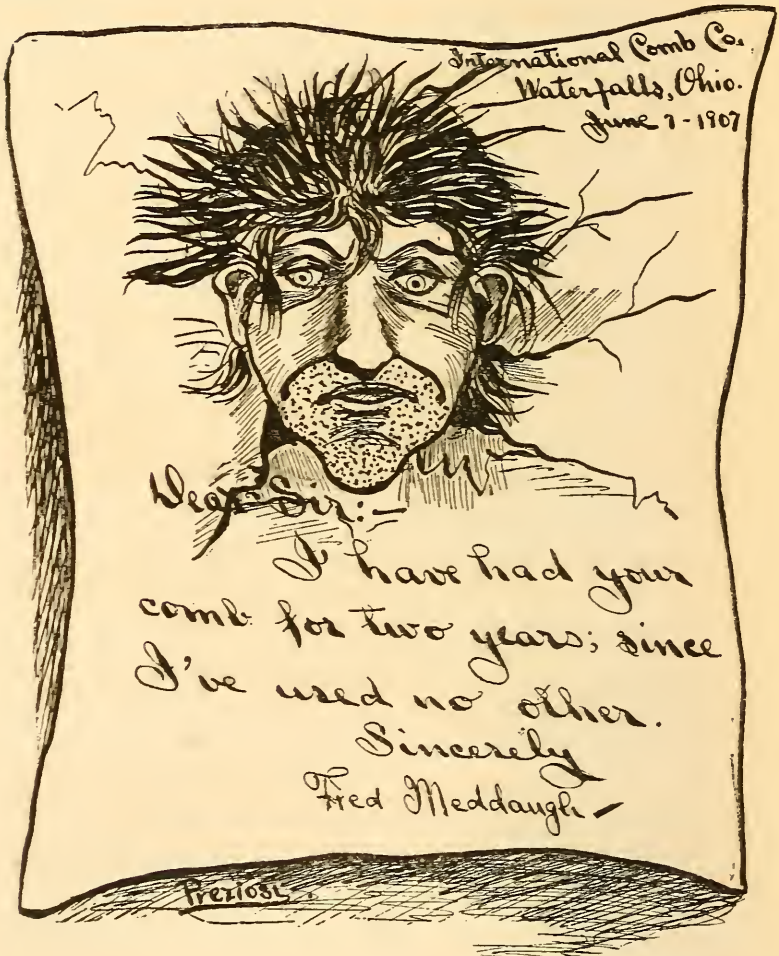 International Comb Co.
Waterfalls, Ohio.
June 7 - 1907
Dear Sir:—
I have had your
comb for two years; since
I've used no other.
Sincerely
Fred Meddaugh
Preziosi.